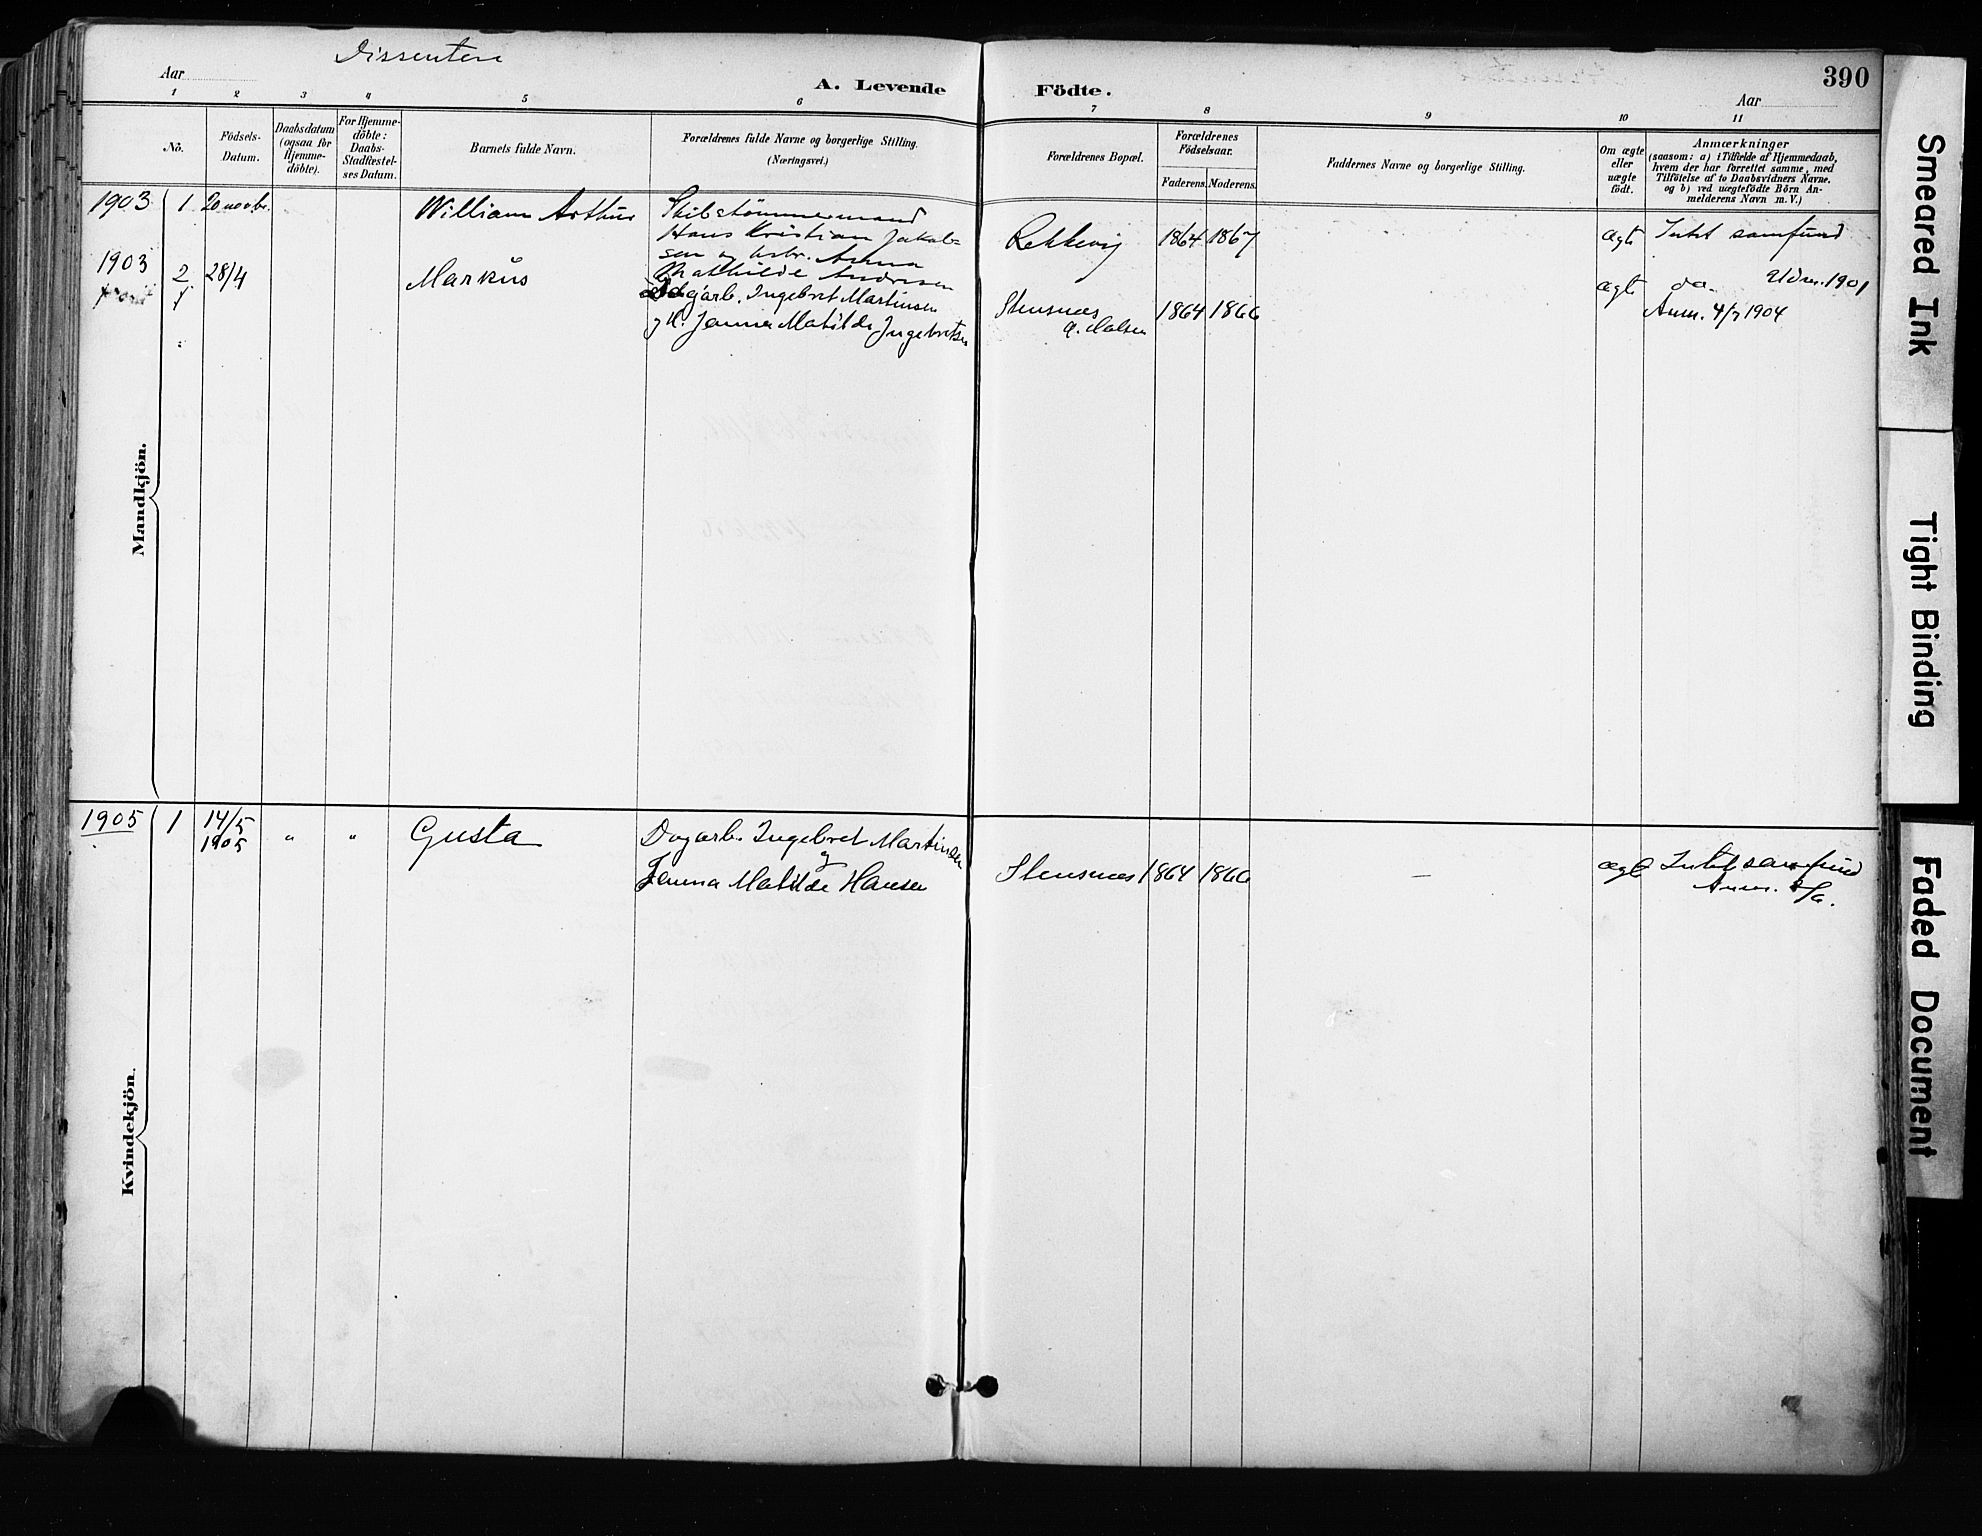 Dissentere
390
Aar
A. Levende Fødte.
Aar
1 2 3 4 5 6 7 8 9 10 11
No.
Fødsels-Datum.
Daabsdatum (ogsaa for Hjemme-døbte).
For Hjemme-døbte: Daabs-Stadfæstel-ses Datum.
Barnets fulde Navn.
Forældrenes fulde Navne og borgerlige Stilling.
(Næringsvei.)
Forældrenes Bopæl.
Forældrenes Fødselsaar.
Faderens. Moderens.
Faddernes Navne og borgerlige Stilling.
Om ægte eller uægte født.
Anmærkninger
(saasom: a) i Tilfælde af Hjemmedaab,
hvem der har forrettet samme, med
Tilføielse af to Daabsvidners Navne,
og b) ved uægtefødte Börn An-
melderens Navn m. V.)
Mandkjön.
1903 1 20 novbr. William Arthur
Skibstømmermand
Hans Kristian Jakob-
sen og hstr. Anna
Mathilde Andresen
Rekkevig 1864 1867 ægte Intet samfund
Udm. 1901
1903 2 28/4 Markus
Dagarb. Ingebret Martinsen
og H. Janna Matilde Ingebretsen
Stensnæs 1864 1866 ægte do.
Anm. 4/7 1904
Kvindekjön.
1905 1 14/5 1905 " " Gusta
Dagarb. Ingebret Martinsen
og
Janna Matilde Hansen
Stensnæs 1864 1866 — ægte Intet samfund
Anm.
Smeared Ink
Tight Binding
Faded Document